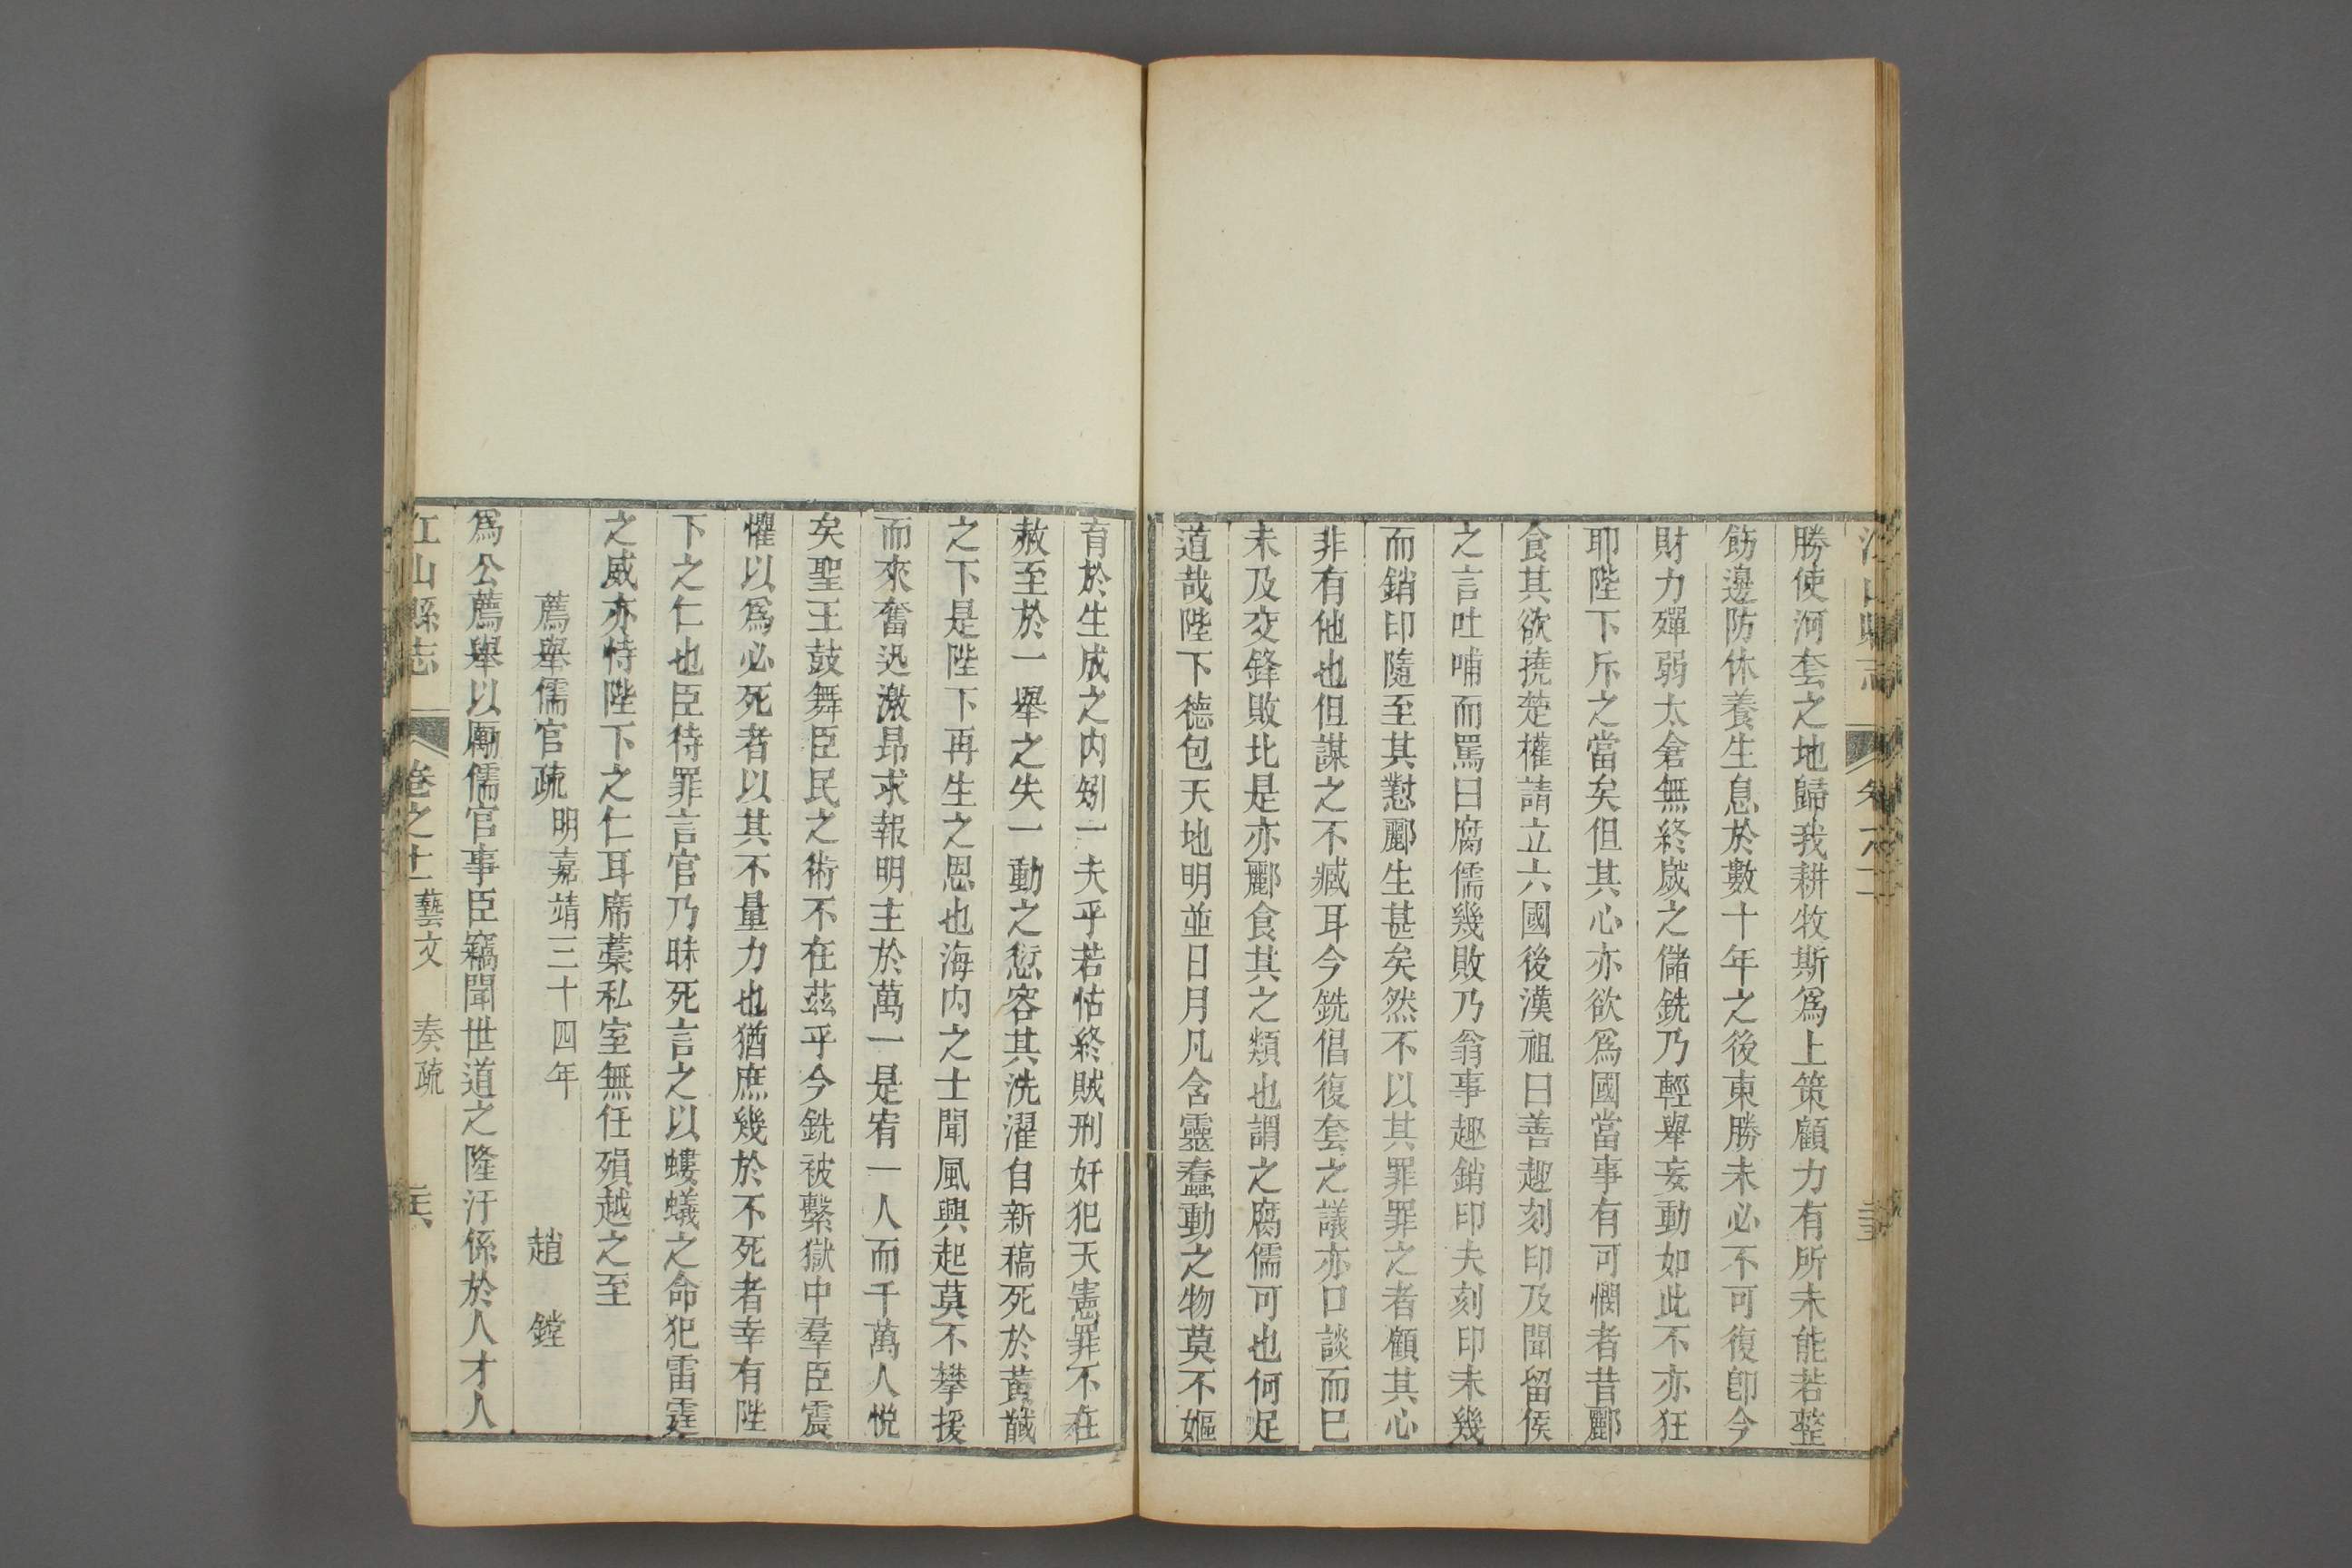 勝使河套之地歸我耕牧斯爲上策顧力有所未能若整
飭邊防休養生息於數十年之後東勝未必不可復卽今
財力殫弱太倉無終歲之儲銑乃輕舉妄動如此不亦狂
耶陛下斥之當矣但其心亦欲爲國當事有可憫者昔酈
食其欲撓楚權請立六國後漢祖曰善趣刻印及聞留侯
之言吐哺而罵曰腐儒幾敗乃翁事趣銷印夫刻印未幾
而銷印隨至其懟酈生甚矣然不以其罪罪之者顧其心
非有他也但謀之不臧耳今銑倡復套之議亦口談而已
未及交鋒敗北是亦酈食其之類也謂之腐儒可也何足
道哉陛下德包天地明並日月凡含靈蠢動之物莫不嫗
育於生成之內矧一夫乎若怙終賊刑奸犯天憲罪不在
赦至於一舉之失一動之愆容其洗濯自新稿死於黃馘
之下是陛下再生之恩也海內之士聞風興起莫不攀援
而來奮迅激昂求報明主於萬一是宥一人而千萬人悅
矣聖王鼓舞臣民之術不在茲乎今銑被繫獄中羣臣震
懼以爲必死者以其不量力也猶庶幾於不死者幸有陛
下之仁也臣待罪言官乃昧死言之以螻蟻之命犯雷霆
之威亦恃陛下之仁耳席藁私室無任殞越之至
薦舉儒官疏 明嘉靖三十四年 趙 鏜
爲公薦舉以勵儒官事臣竊聞世道之隆汙係於人才人
江山縣志 卷之十一 藝文 奏疏